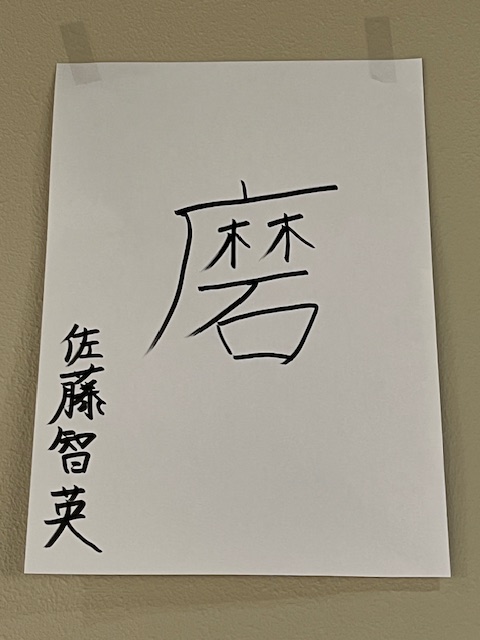 磨
佐藤智英